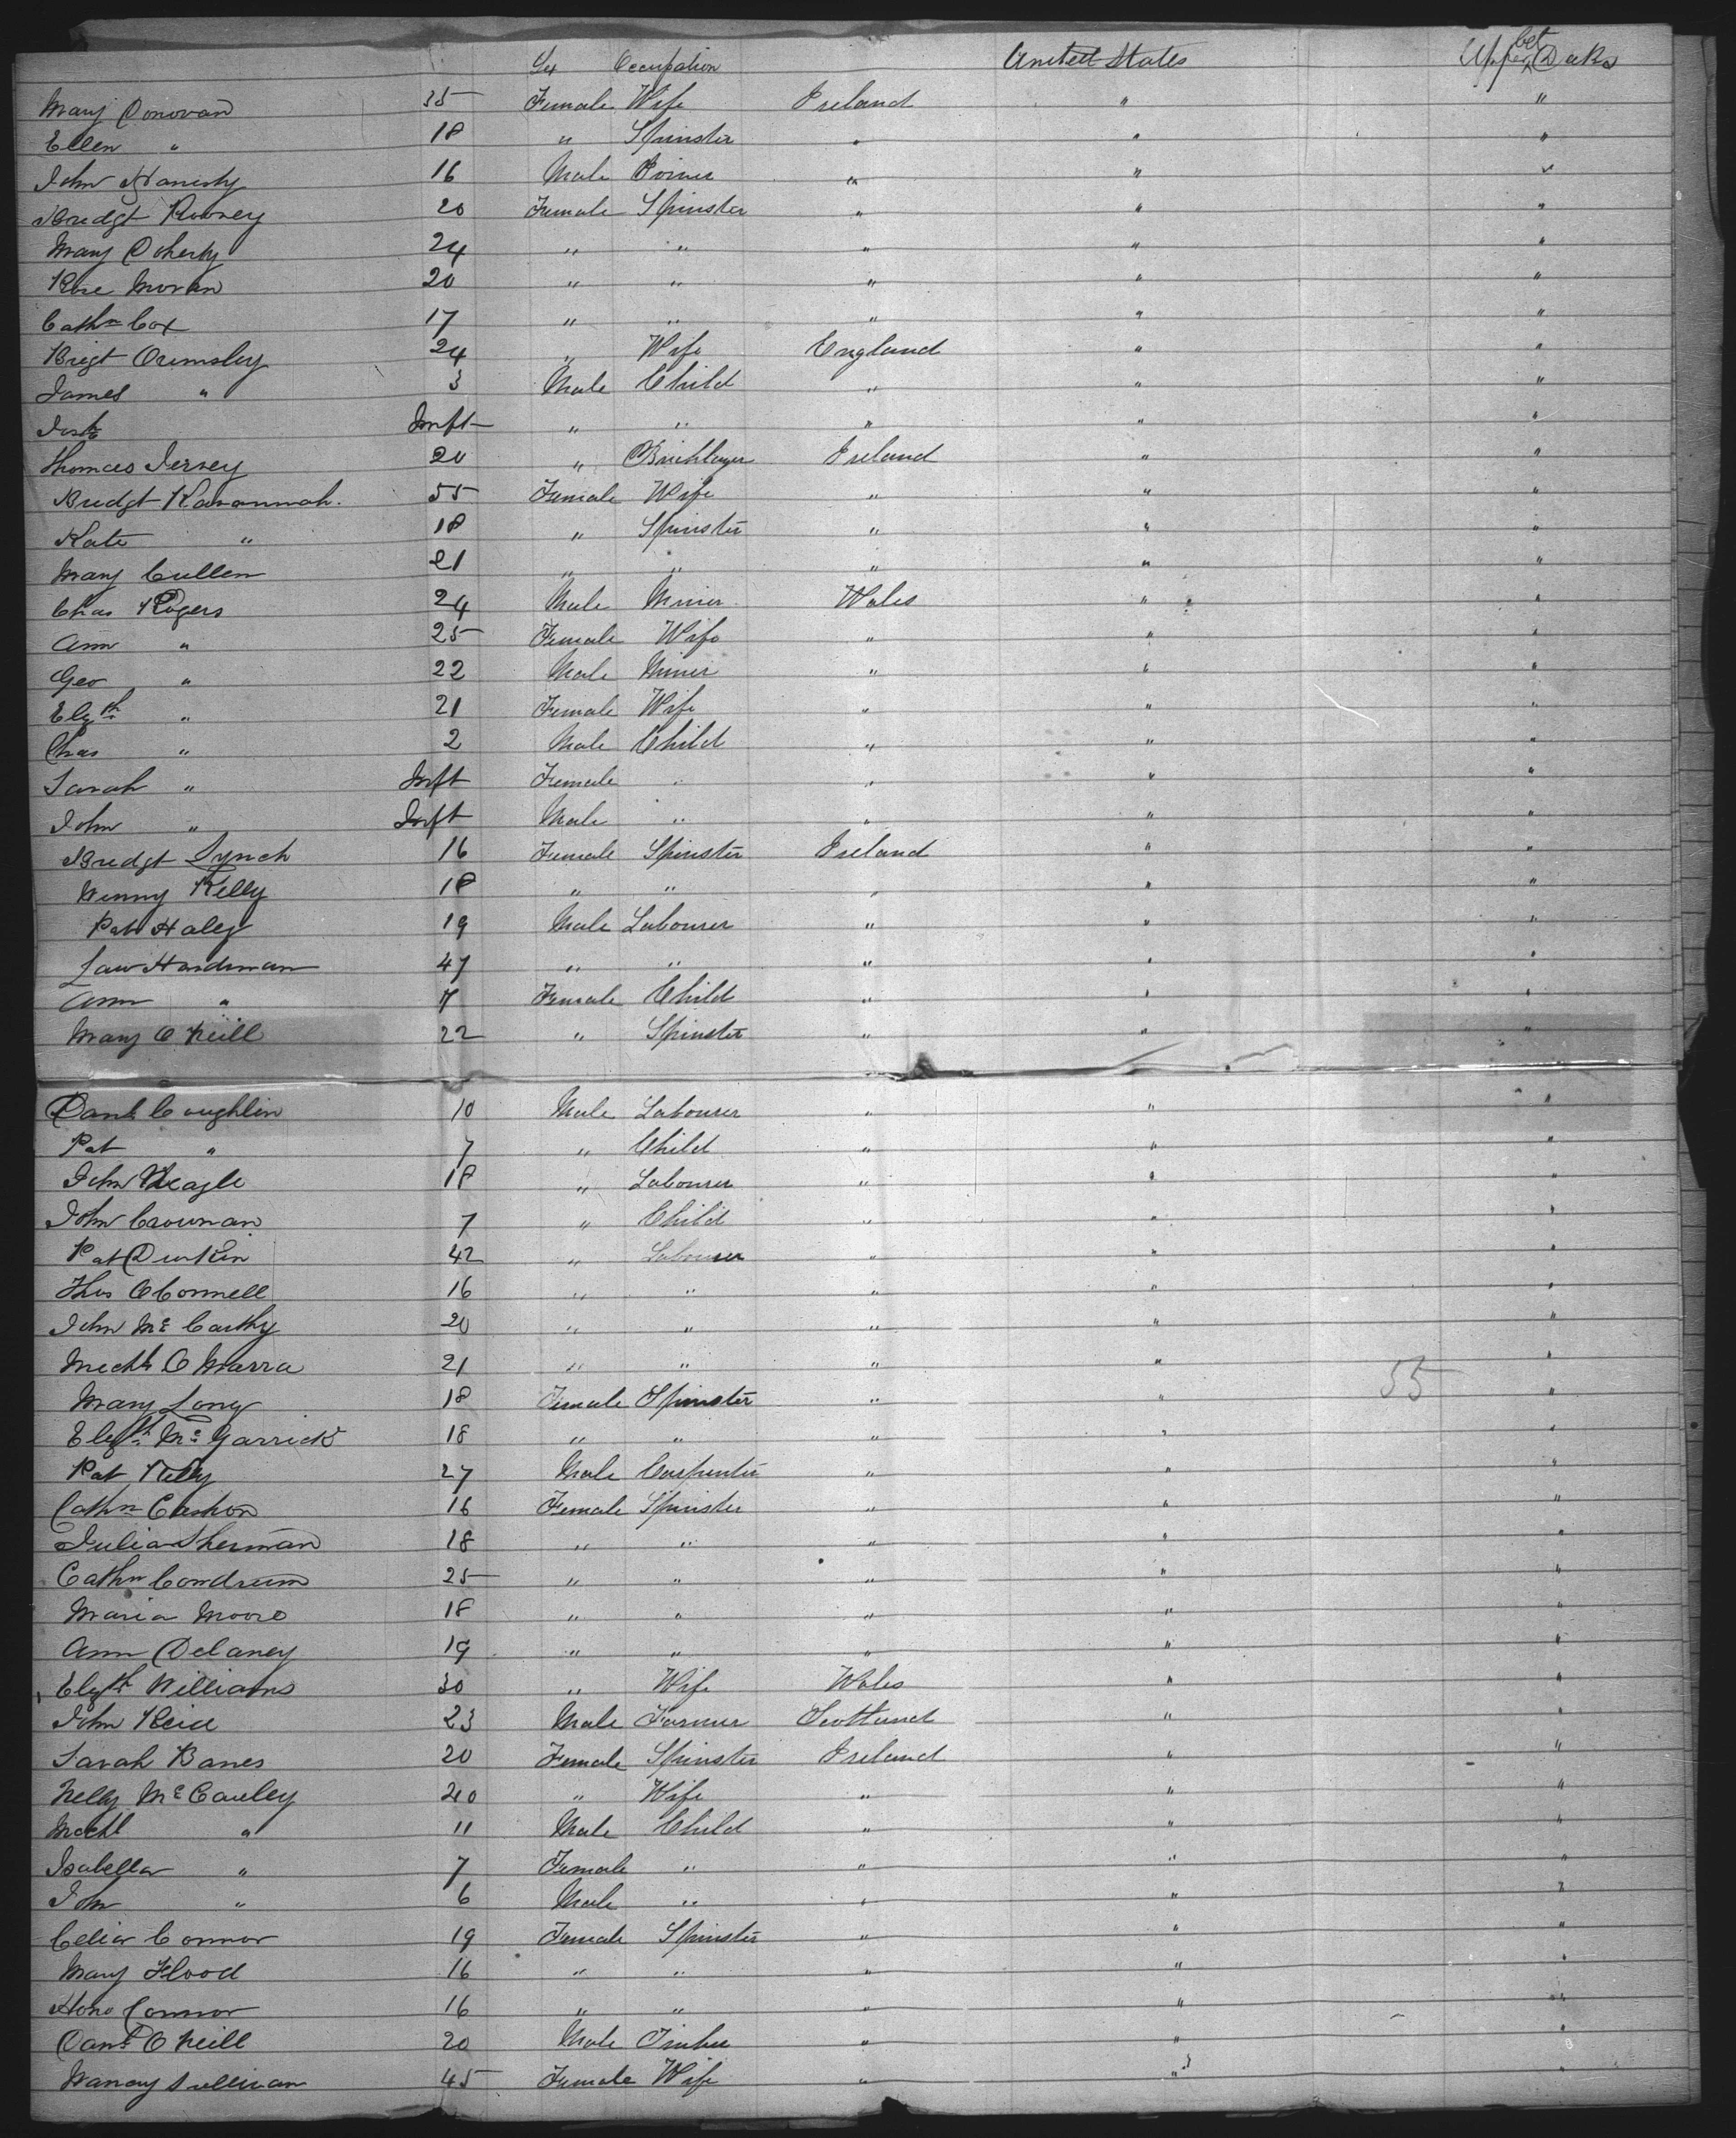 Sex Occupation United States Upper bet Decks
Mary Donovan 35 Female Wife Ireland " "
Ellen " 18 " Spinster " " "
John 16 Male Joiner " " "
Bridgt Rooney 20 Female Spinster " " "
Mary Doherty 24 " " " " "
Rose Moran 20 " " " " "
Cathn Cox 17 " " " " "
Brigt Ormsby 24 " Wife England " "
James " 3 Male Child " " "
Josh Inft " " " " "
Thomas Jersey 20 " Bricklayer Ireland " "
Bridgt Kavannah. 55 Female Wife " " "
Kate " 18 " Spinster " " "
Mary Cullen 21 " " " " "
Chas Rogers 24 Male Miner Wales " "
Ann " 25 Female Wife " " "
Geo " 22 Male Miner " " "
Elizth " 21 Female Wife " " "
Chas " 2 Male Child " " "
Sarah " Inft Female " " " "
John " Inft Male " " " "
Bridgt Lynch 16 Female Spinster Ireland " "
Winny Kelly 18 " " " " "
Pat Haley 19 Male Labourer " " "
Law Hardman 47 " " " " "
Ann " 7 Female Child " " "
Mary O Neill 22 " Spinster " " "
Danl Coughlin 10 Male Labourer " " "
Pat " 7 " Child " " "
John Neagle 18 " Labourer " " "
John Crownan 7 " Child " " "
Pat Durkin 42 " Labourer " " "
Thos OConnell 16 " " " " "
John Mc Carthy 20 " " " " "
Michl O Marra 21 " " " " "
55
Mary Long 18 Female Spinster " " "
Elizth Mc Garrick 18 " " " " "
Pat Kelly 27 Male Carpenter " " "
Cathn Cashon 16 Female Spinster " " "
Julia Sherman 18 " " " " "
Cathn Condrum 25 " " " " "
Maria Moore 18 " " " " "
Ann Delaney 19 " " " " "
Elizth Williams 30 " Wife Wales " "
John Reid 23 Male Farmer Scotland " "
Sarah Banes 20 Female Spinster Ireland " "
Nelly McCauley 40 " Wife " " "
Michl " 11 Male Child " " "
Isabella " 7 Female " " " "
John " 6 Male " " " "
Celia Connor 19 Female Spinster " " "
Mary Flood 16 " " " " "
Hono Connor 16 " " " " "
Danl O Neill 20 Male " " "
Nancy Sullivan 45 Female Wife " " "